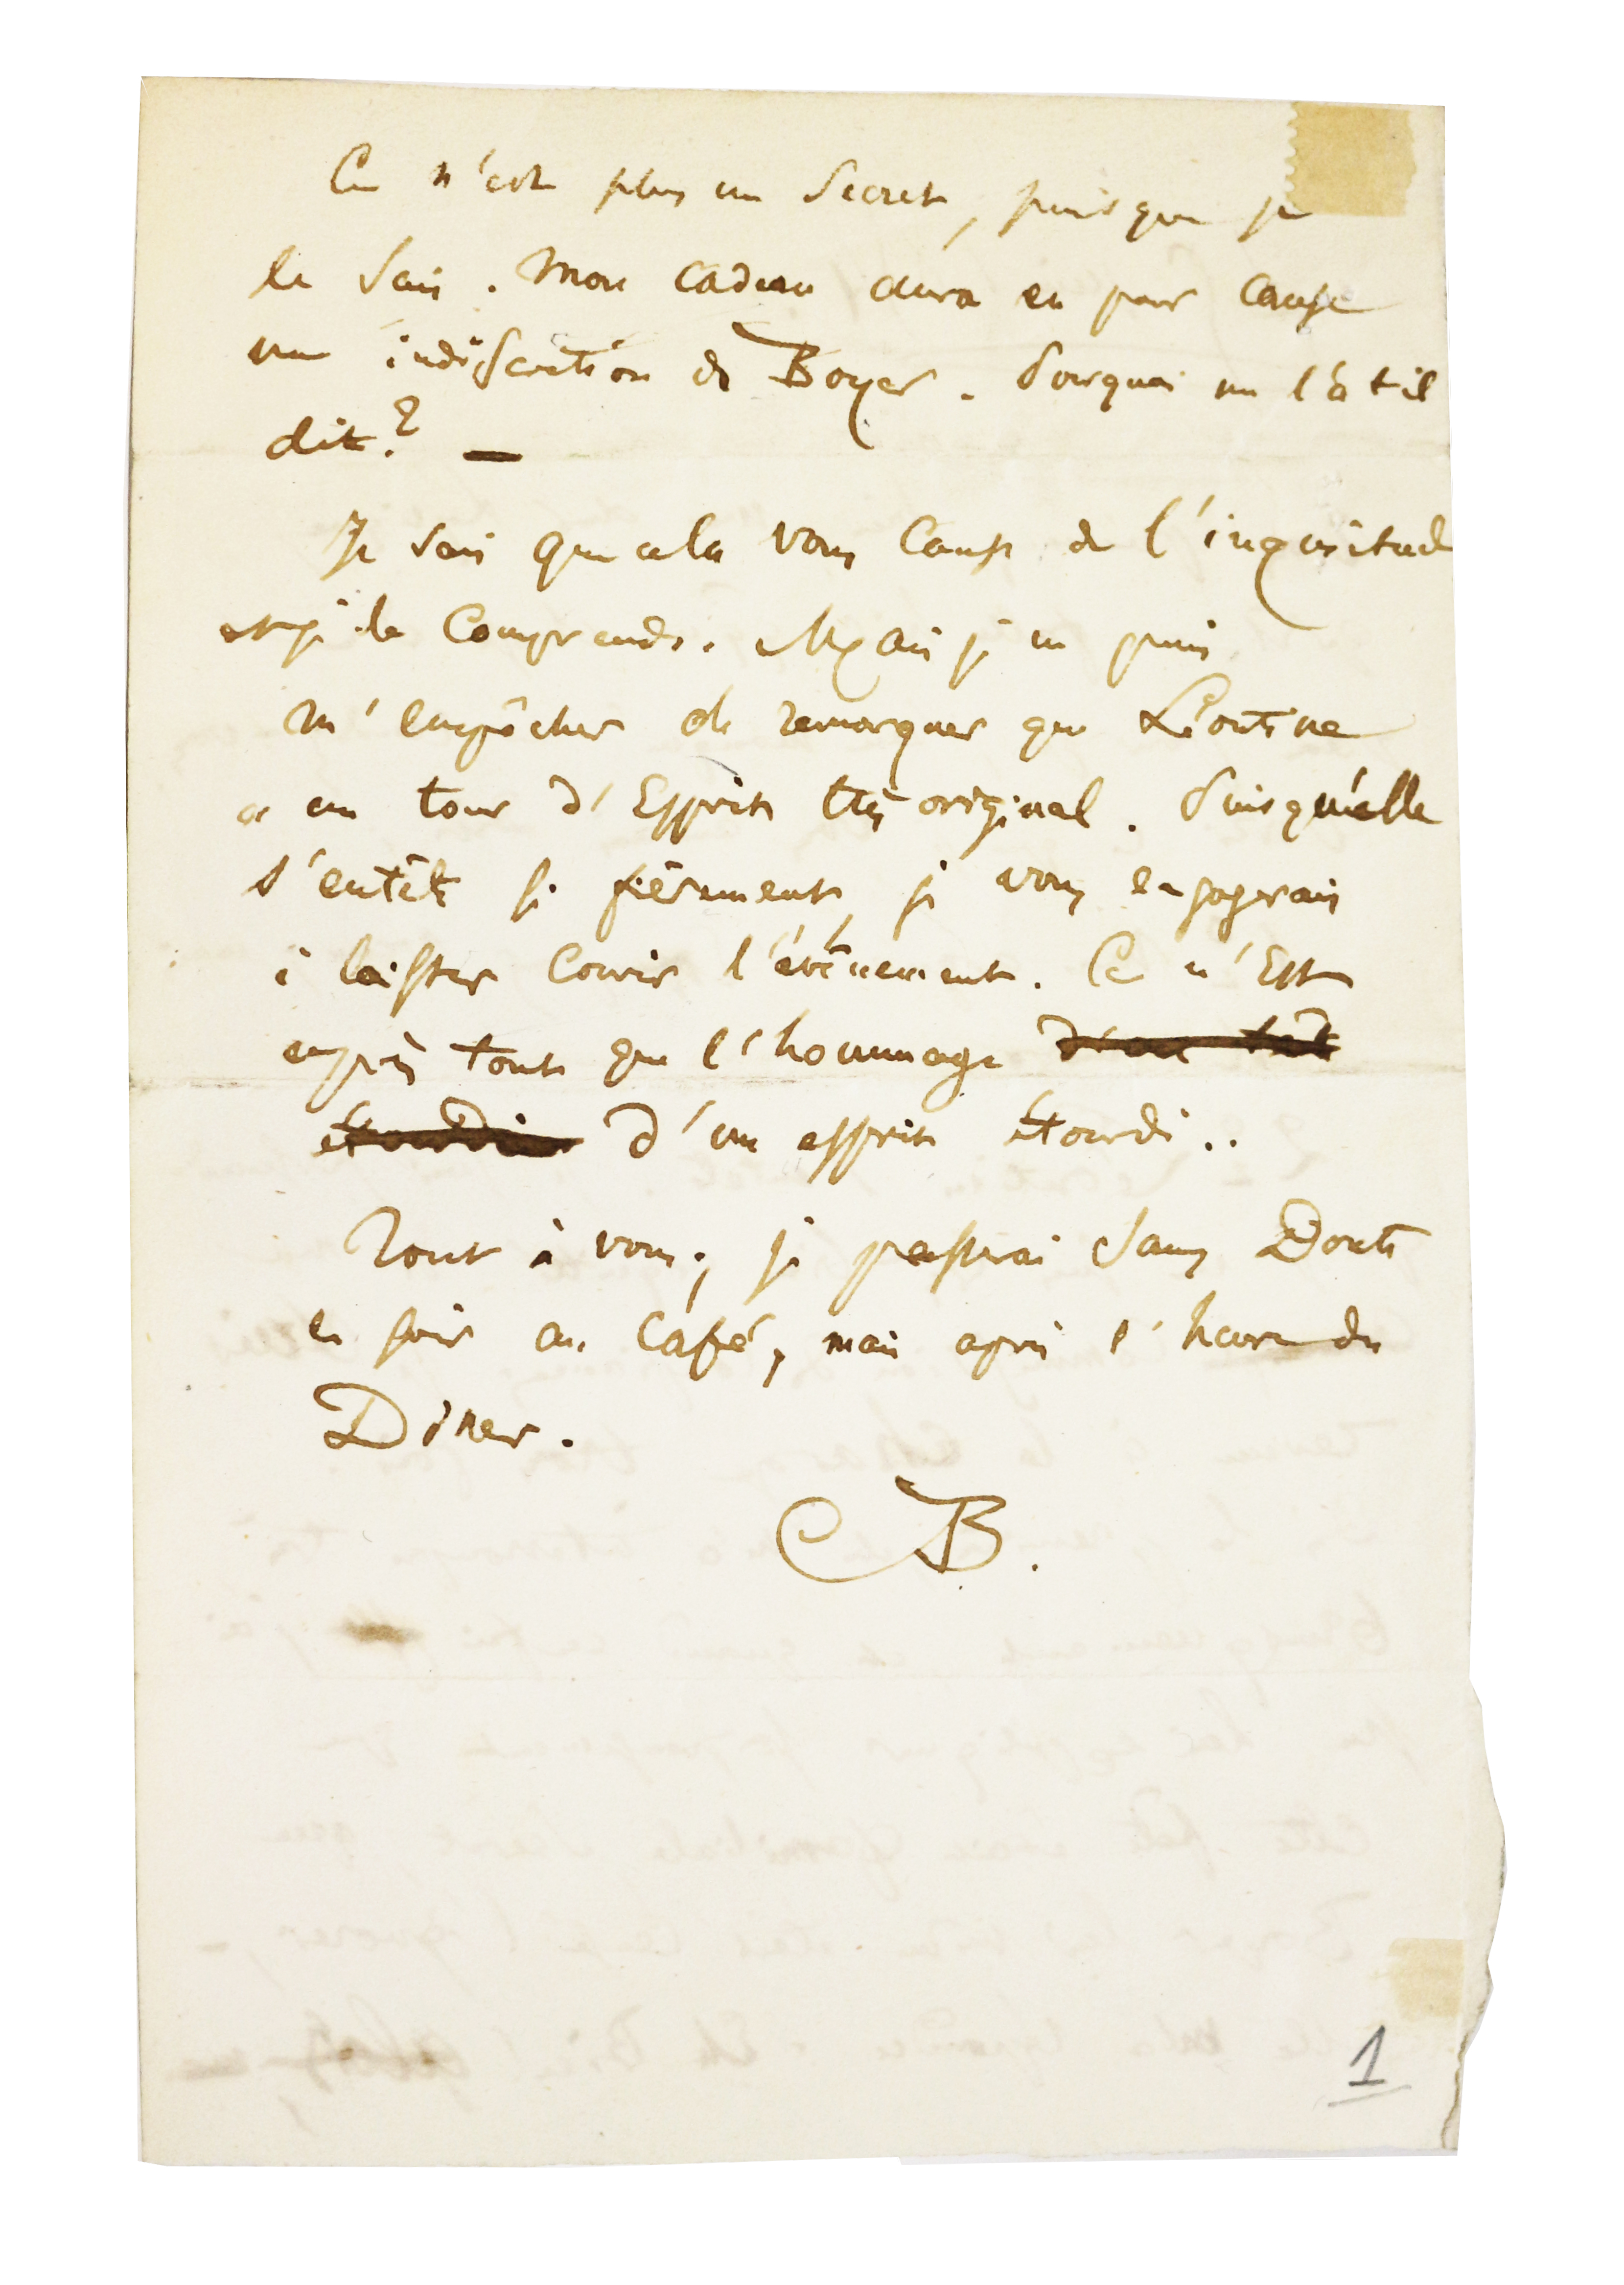 Ce n'est plus un secret, puisque je
le sais. Mon cadeau aura eu pour cause
une indiscrétion de Boyer. Pourquoi me l'a t-il
dit? —
Je sais que cela vous cause de l'inquiétude
et je le comprends. Mais je ne puis
m'empêcher de remarquer que Léontine
a un tour d'Esprit très original. Puisqu'elle
s'entête si fièrement, je vous engagerais
à laisser courir l'évènement. Ce n'Est
après tout que l'hommage
d'un esprit étourdi..
Tout à vous; je passerai sans Doute
ce soir au Café, mais après l'heure du
Diner.
CB.
1